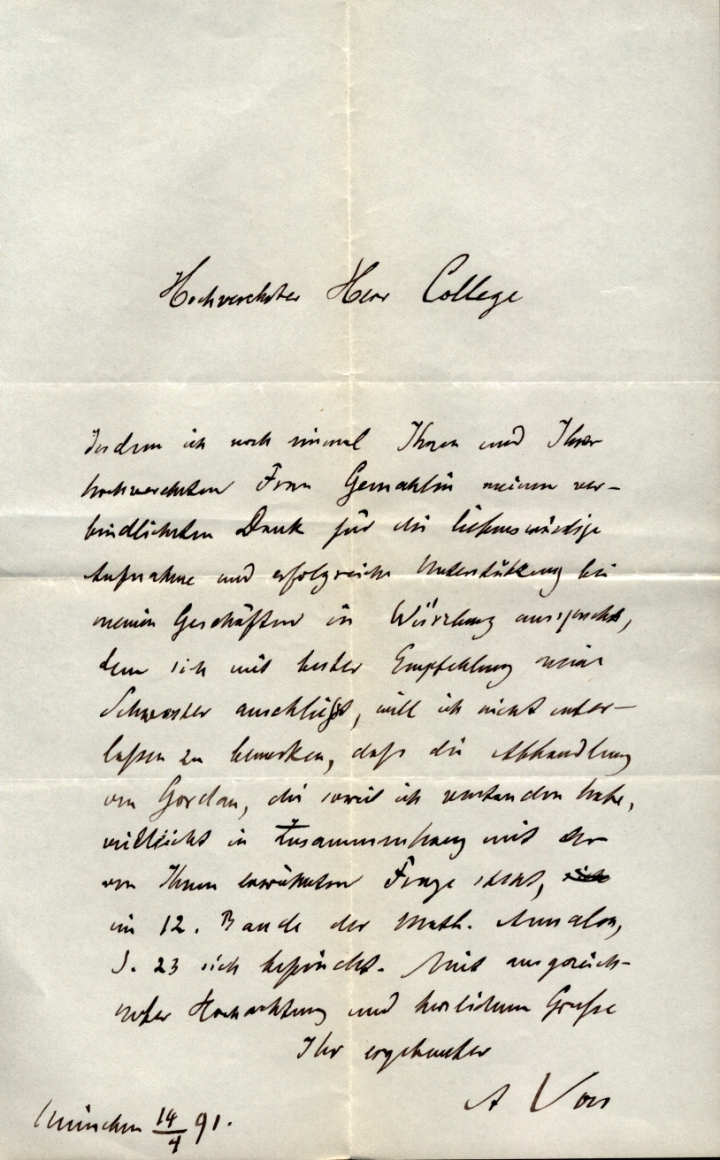 Hochverehrter Herr College
Indem ich noch einmal Ihnen und Ihrer
hochverehrten Frau Gemahlin meinen ver-
bindlichsten Dank für die liebenswürdige
Aufnahme und erfolgreiche Unterstützung bei
meinen Geschäften in Würzburg ausspreche,
dem sich mit bester Empfehlung meine
Schwester anschließt, will ich nicht unter-
laßen zu bemerken, daß die Abhandlung
von Gordan, die soviel ich verstanden habe,
vielleicht in Zusammenhang mit der
von Ihnen erwähnten Frage steht,
im 12. Bande der Math. Annalen,
S. 23 sich befindet. Mit ausgezeich-
neter Hochachtung und herzlichem Gruße
Ihr ergebenster
A Voss
München 14/4 91.